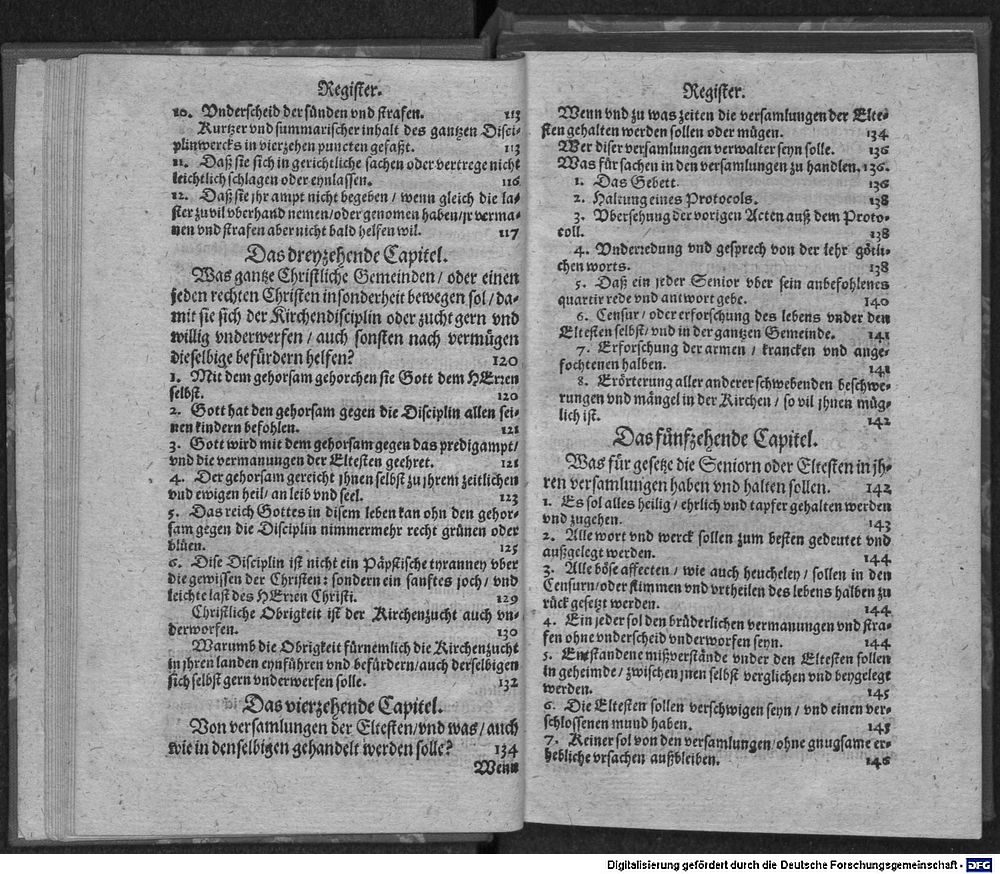 Register.
10. Vnderscheid der sünden vnd strafen. 113
Kurtzer vnd summarischer inhalt des gantzen Disci-
plinwercks in vierzehen puncten gefaßt. 113
11. Daß sie sich in gerichtliche sachen oder vertrege nicht
leichtlich schlagen oder eynlassen. 116
12. Daß sie jhr ampt nicht begeben / wenn gleich die la-
ster zuvil vberhand nemen/oder genomen haben/jr verma-
nen vnd strafen aber nicht bald helfen wil. 117
Das dreyzehende Capitel.
Was gantze Christliche Gemeinden / oder einen
jeden rechten Christen insonderheit bewegen sol / da-
mit sie sich der Kirchendisciplin oder zucht gern vnd
willig vnderwerfen / auch sonsten nach vermügen
dieselbige befürdern helfen? 120
1. Mit dem gehorsam gehorchen sie Gott dem HErren
selbst. 120
2. Gott hat den gehorsam gegen die Disciplin allen sei-
nen kindern befohlen. 121
3. Gott wird mit dem gehorsam gegen das predigampt/
vnd die vermanungen der Eltesten geehret. 121
4. Der gehorsam gereicht jhnen selbst zu jhrem zeitlichen
vnd ewigen heil/ an leib vnd seel. 123
5. Das reich Gottes in disem leben kan ohn den gehor-
sam gegen die Disciplin nimmermehr recht grünen oder
blüen. 125
6. Dise Disciplin ist nicht ein Päpstische tyranney vber
die gewissen der Christen: sondern ein sanftes joch/ vnd
leichte last des HErren Christi. 129
Christliche Obrigkeit ist der Kirchenzucht auch vn-
derworfen. 130
Warumb die Obrigkeit fürnemlich die Kirchenzucht
in jhren landen eynführen vnd befürdern/auch derselbigen
sich selbst gern vnderwerfen solle. 132
Das vierzehende Capitel.
Von versamlungen der Eltesten/vnd was/ auch
wie in denselbigen gehandelt werden solle? 134
Wenn
Register.
Wenn vnd zu was zeiten die versamlungen der Elte-
sten gehalten werden sollen oder mügen. 134
Wer diser versamlungen verwalter seyn solle. 136
Was für sachen in den versamlungen zu handlen. 136.
1. Das Gebett. 136
2. Haltung eines Protocols. 138
3. Vbersehung der vorigen Acten auß dem Proto-
coll. 138
4. Vnderredung vnd gesprech von der lehr götli-
chen worts. 138
5. Daß ein jeder Senior vber sein anbefohlenes
quartir rede vnd antwort gebe. 140
6. Censur / oder erforschung des lebens vnder den
Eltesten selbst/ vnd in der gantzen Gemeinde. 141
7. Erforschung der armen / krancken vnd ange-
fochtenen halben. 141
8. Erörterung aller anderer schwebenden beschwe-
rungen vnd mängel in der Kirchen / so vil jhnen müg-
lich ist. 142
Das fünfzehende Capitel.
Was für gesetze die Seniorn oder Eltesten in jh-
ren versamlungen haben vnd halten sollen. 142
1. Es sol alles heilig / ehrlich vnd tapfer gehalten werden
vnd zugehen. 143
2. Alle wort vnd werck sollen zum besten gedeutet vnd
außgelegt werden. 144
3. Alle böse affecten / wie auch heucheley / sollen in den
Censurn/oder stimmen vnd vrtheilen des lebens halben zu
rück gesetzt werden. 144
4. Ein jeder sol den brüderlichen vermanungen vnd stra-
fen ohne vnderscheid vnderworfen seyn. 144
5. Entstandene mißverstände vnder den Eltesten sollen
in geheimde / zwischen jnen selbst verglichen vnd beygelegt
werden. 145
6. Die Eltesten sollen verschwigen seyn / vnd einen ver-
schlossenen mund haben. 145
7. Keiner sol von den versamlungen/ohne gnugsame er-
hebliche vrsachen außbleiben. 146
Digitalisierung gefördert durch die Deutsche Forschungsgemeinschaft - DFG